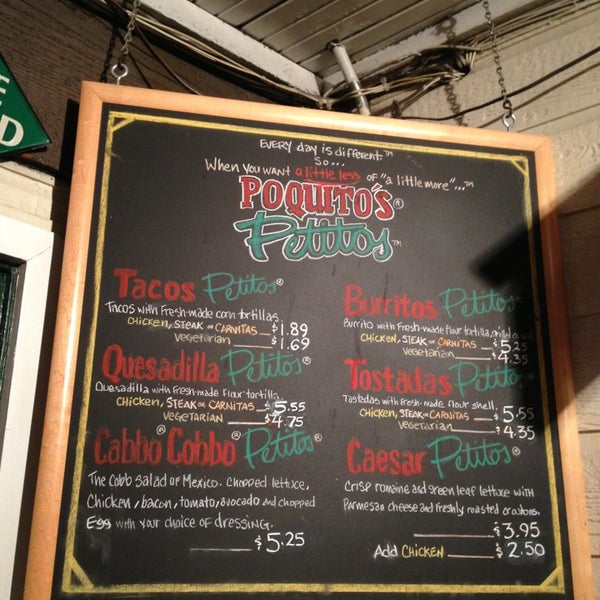 E
D
EVERY day is different.™
So...
When you want a little less of "a little more"...™
POQUITO'S®
Petitos™
Tacos Petitos®
Tacos with Fresh-made corn tortillas.
CHICKEN, STEAK or CARNITAS $1.89
VEGETARIAN $1.69
Quesadilla Petitos®
Quesadilla with Fresh-made flour tortilla.
CHICKEN, STEAK or CARNITAS $5.55
VEGETARIAN $4.75
Cabbo® Cobbo® Petitos®
The Cobb salad of Mexico. Chopped lettuce,
Chicken, bacon, tomato, avocado and chopped
Egg with your choice of dressing.
$5.25
Burritos Petitos®
Burrito with Fresh-made flour tortilla,
CHICKEN, STEAK or CARNITAS $5.25
Vegetarian $4.35
Tostadas Petitos
Tostadas with Fresh-made flour shell.
CHICKEN, STEAK or CARNITAS $5.55
Vegetarian $4.35
Caesar Petitos®
Crisp romaine and green leaf lettuce with
Parmesan cheese and freshly roasted croutons.
$3.95
Add CHICKEN $2.50